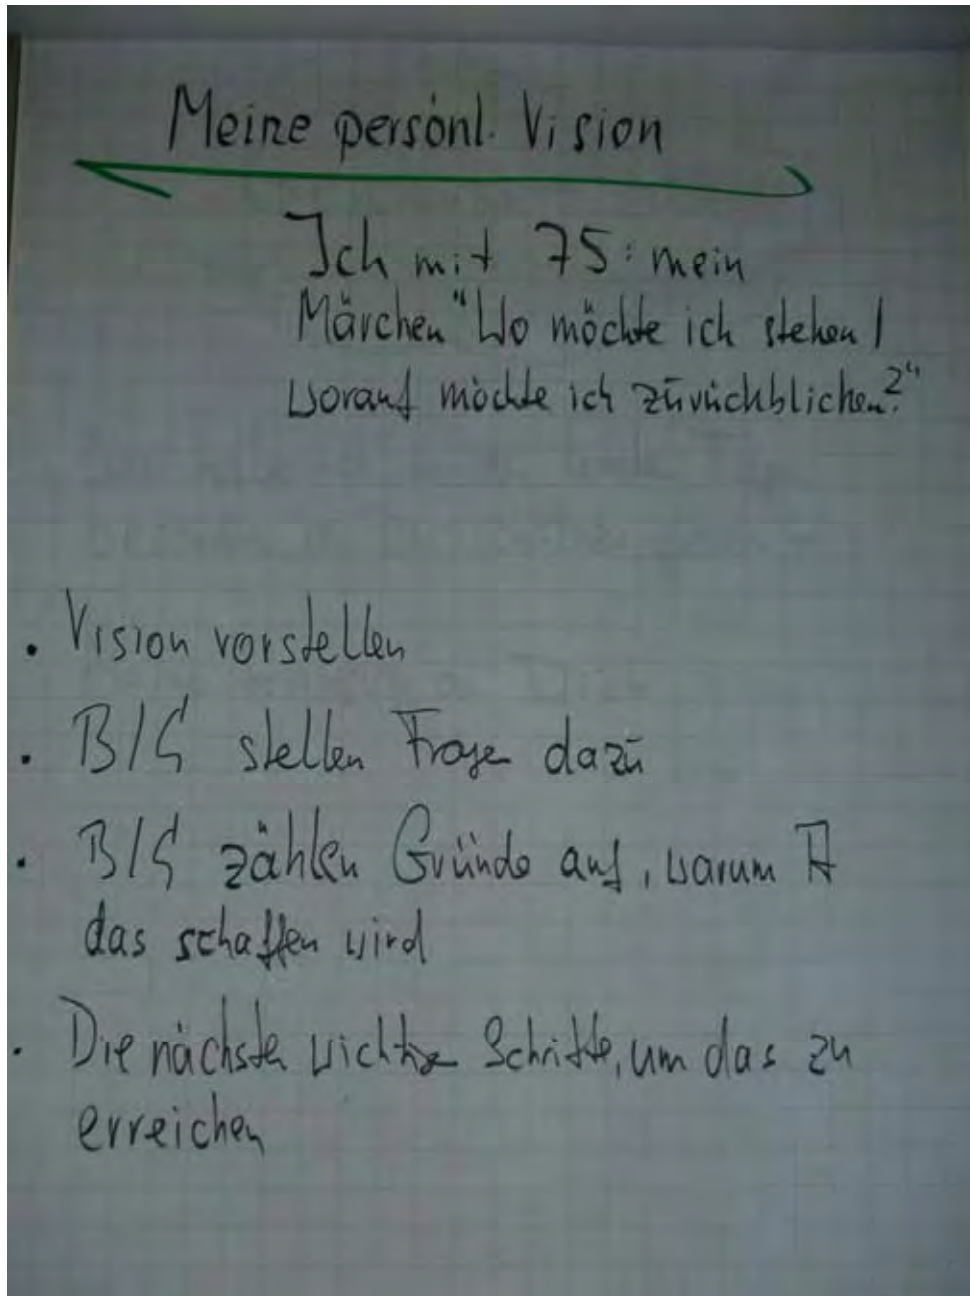 Meine persönl. Vision
Ich mit 75: mein
Märchen "Wo möchte ich stehen /
worauf möchte ich zurückblicken?"
. Vision vorstellen
. B/C stellen Fragen dazu
. B/C zählen Gründe auf, warum A
das schaffen wird
. Die nächsten wichtige Schritte, um das zu
erreichen